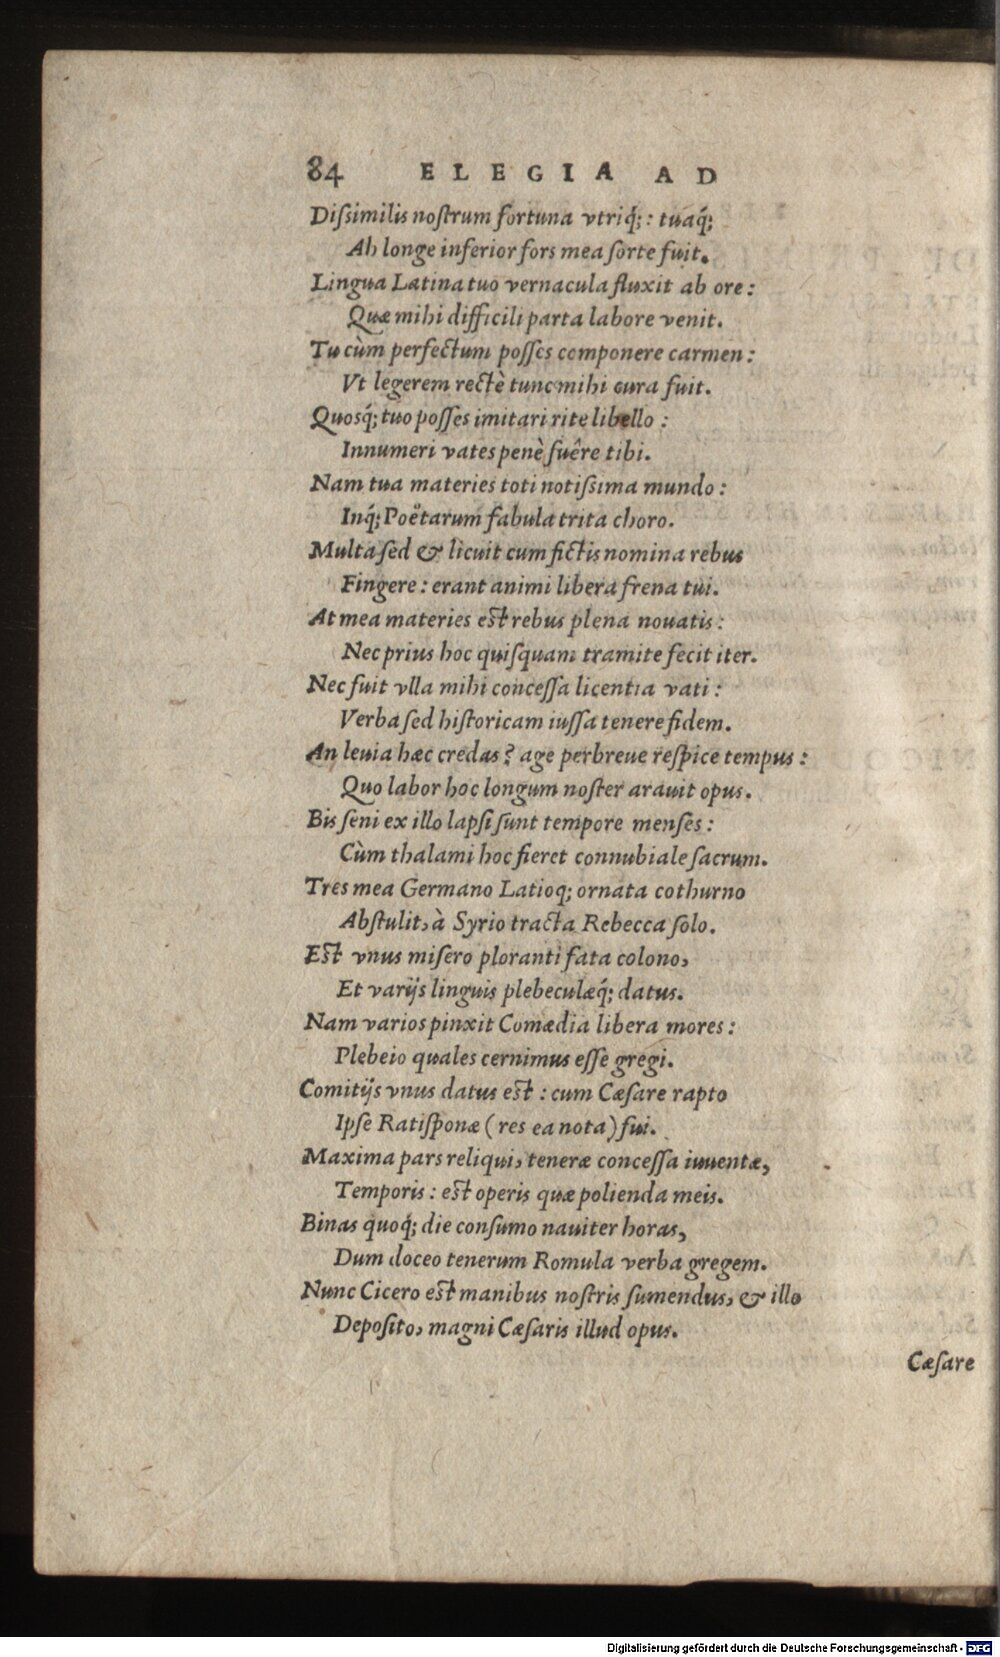 84 ELEGIA AD
Diſsimilis noſtrum fortuna vtriq́;: tuaq́;
Ab longe inferior fors mea ſorte fuit.
Lingua Latina tuo vernacula fluxit ab ore:
Quæ mihi difficili parta labore venit.
Tu cùm perfectum poſſes componere carmen:
Vt legerem rectè tunc mihi cura fuit.
Quosq́; tuo poſſes imitari rite libello:
Innumeri vates penè fuêre tibi.
Nam tua materies toti notiſsima mundo:
Inq́; Poëtarum fabula trita choro.
Multa ſed & licuit cum fictis nomina rebus
Fingere: erant animi libera frena tui.
At mea materies eſt rebus plena nouatis:
Nec prius hoc quiſquam tramite fecit iter.
Nec fuit vlla mihi conceſſa licentia vati:
Verba ſed hiſtoricam iuſſa tenere fidem.
An leuia hæc credas? age perbreue reſpice tempus:
Quo labor hoc longum noſter arauit opus.
Bis ſeni ex illo lapſi ſunt tempore menſes:
Cùm thalami hoc fieret connubiale ſacrum.
Tres mea Germano Latioq; ornata cothurno
Abſtulit, à Syrio tracta Rebecca ſolo.
Eſt vnus miſero ploranti fata colono,
Et varijs linguis plebeculæq́; datus.
Nam varios pinxit Comœdia libera mores:
Plebeio quales cernimus eſſe gregi.
Comitijs vnus datus eſt: cum Cæſare rapto
Ipſe Ratiſponæ (res ea nota) fui.
Maxima pars reliqui, teneræ conceſſa iuuentæ,
Temporis: eſt operis quæ polienda meis.
Binas quoq́; die conſumo nauiter horas,
Dum doceo tenerum Romula verba gregem.
Nunc Cicero eſt manibus noſtris ſumendus, & illo
Depoſito, magni Cæſaris illud opus.
Cæſare
Digitalisierung gefördert durch die Deutsche Forschungsgemeinschaft - DFG